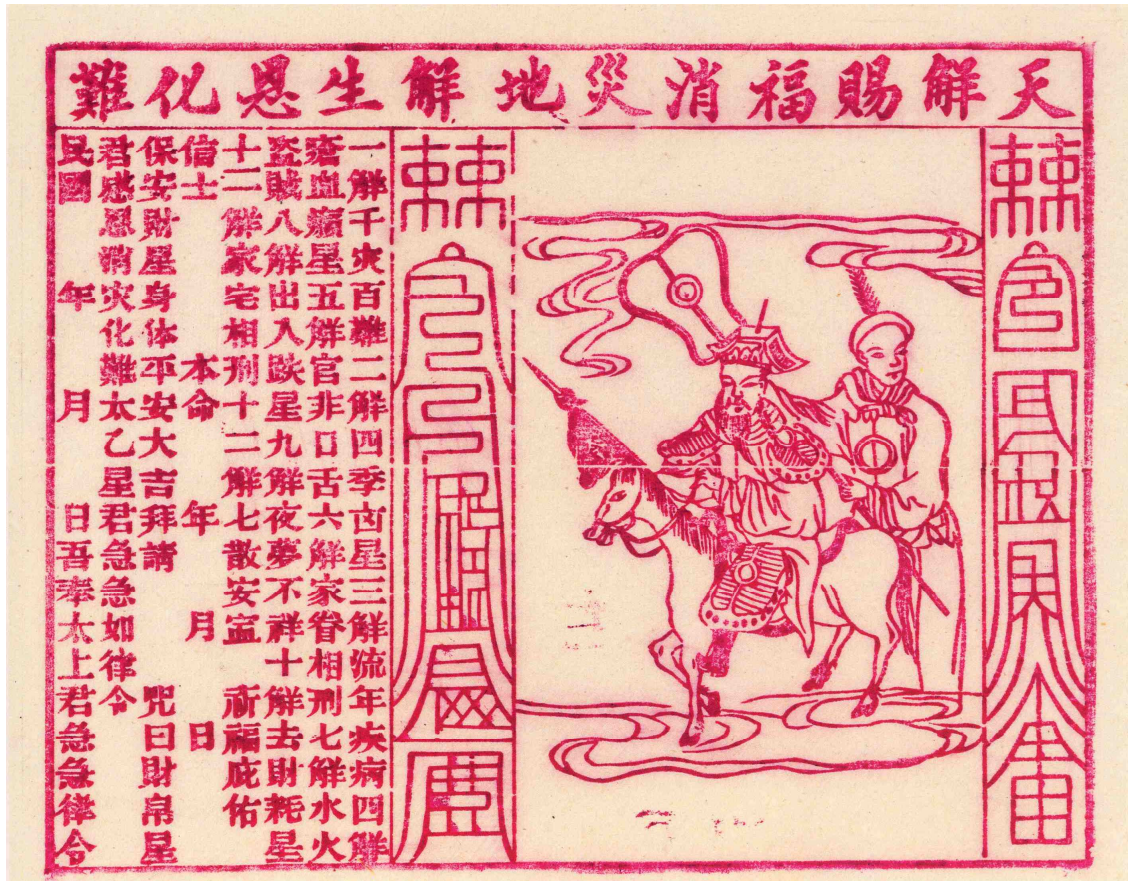 天解賜福消災地解生恩化難
一解千灾百難二解四季凶星三解流年疾病四解
瘡血星五解官非口舌六解家眷相刑七解水火
盜賊八解出入跌星九解夜夢不祥十解去財耗星
十二解家宅相刑十二解七散安寍 祈福庇佑
信士 本命 年 月 日
保安財星身体平安大吉拜請 咒曰財帛星
君感恩消灾化難太乙星君急急如律令
民國 年 月 日吾奉太上君急急律令